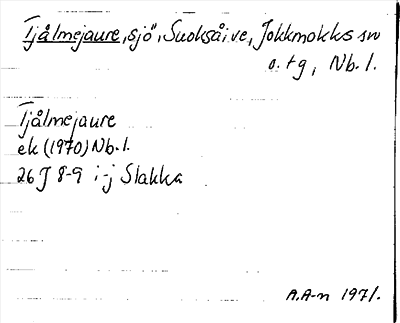 Tjålmejaure, sjö, Suoksåive, Jokkmokks sn
o. tg, Nb. l.
Tjålmejaure
ek (1970) Nb. l.
26 J 8-9 i-j Slakka
A.A-n 1971.